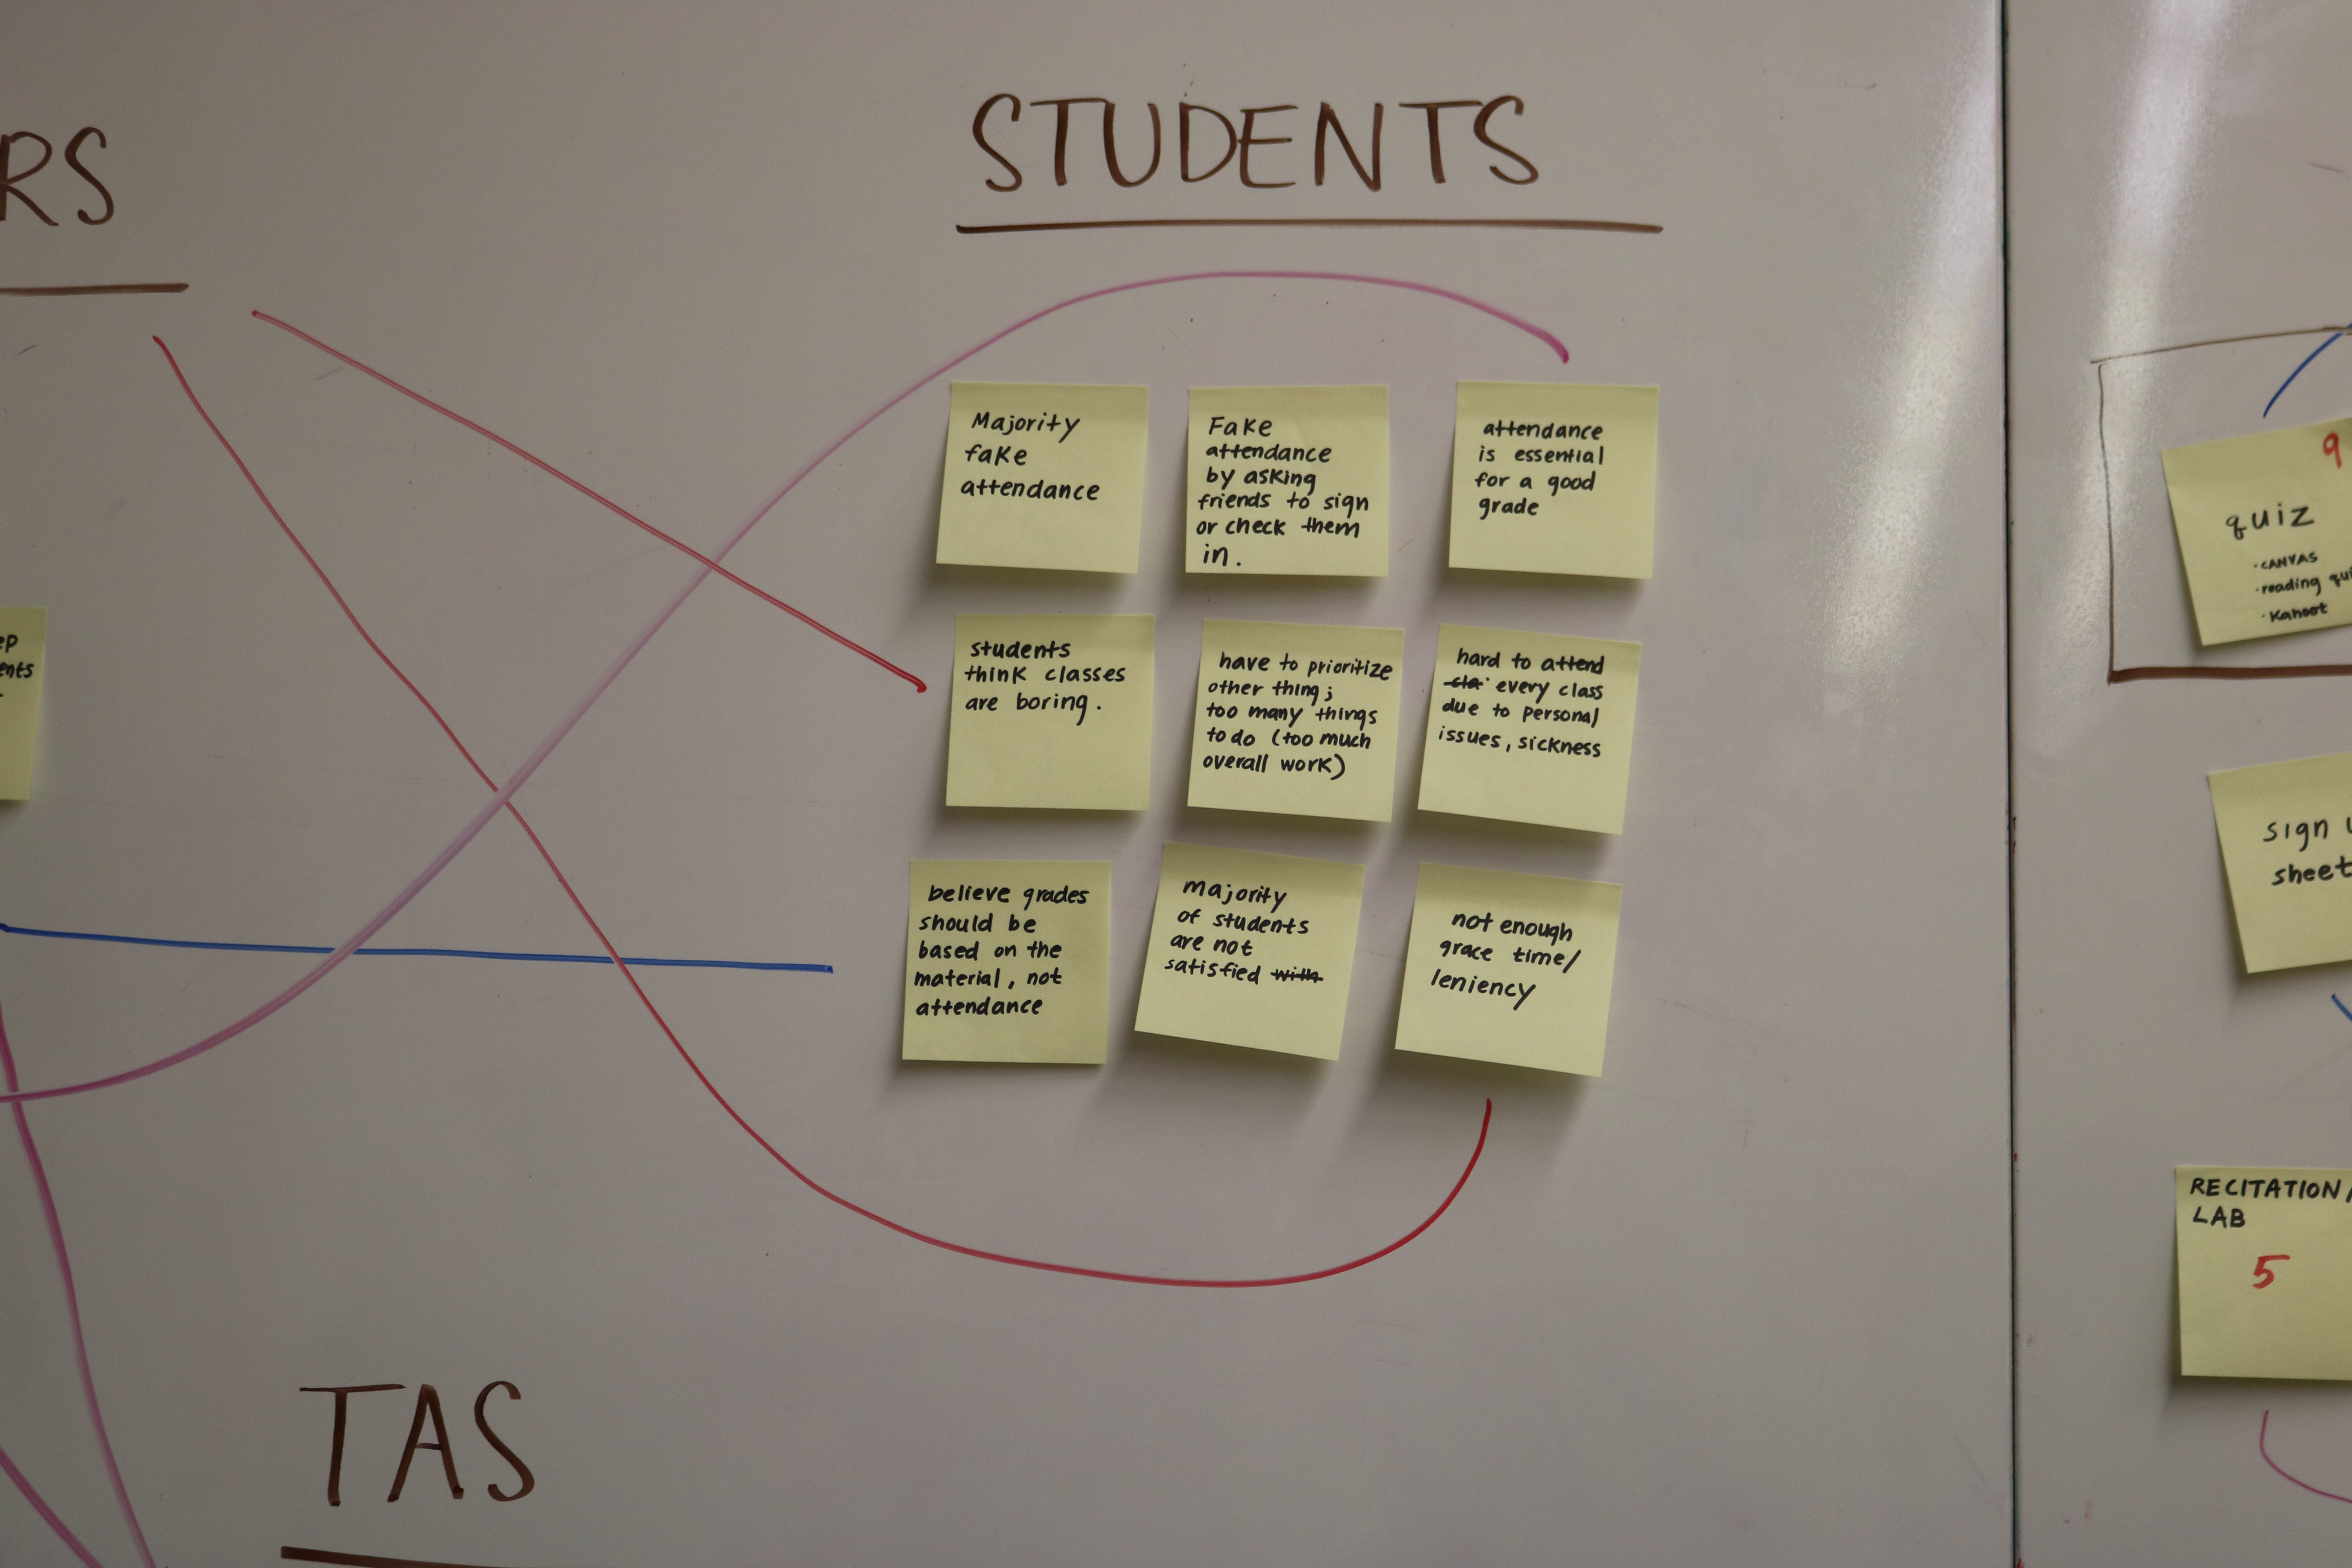 RS
STUDENTS
Majority
fake
attendance
Fake
attendance
by asking
friends to sign
or check them
in.
attendance
is essential
for a good
grade
students
think classes
are boring.
have to prioritize
other thing;
too many things
to do (too much
overall work)
hard to attend
cla every class
due to personal
issues, sickness
believe grades
should be
based on the
material, not
attendance
majority
of students
are not
satisfied with
not enough
grace time/
leniency
TAS
9
quiz
· CANVAS
· reading qui
· Kahoot
sign
sheet
RECITATION/
LAB
5